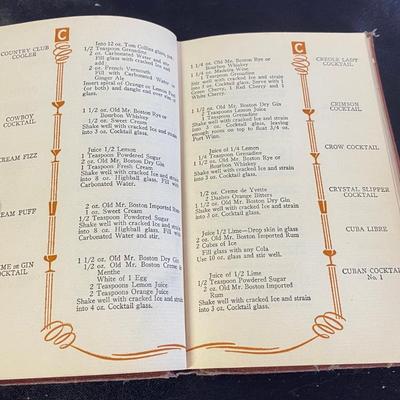 C
COUNTRY CLUB
COOLER
Into 12 oz. Tom Collins glass, put
1/2 Teaspoon Grenadine
2 oz. Carbonated Water and stir
Fill glass with cracked ice and
add
2 oz. French Vermouth
Fill with Carbonated Water or
Ginger Ale
Insert spiral of Orange or Lemon Peel
(or both) and dangle end over rim of
glass.
COWBOY
COCKTAIL
1 1/2 oz. Old Mr. Boston Rye or
Bourbon Whiskey
1/2 oz. Sweet Cream
Shake well with cracked ice and strain
into 3 oz. Cocktail glass.
CREAM FIZZ
Juice 1/2 Lemon
1 Teaspoon Powdered Sugar
2 oz. Old Mr. Boston Dry Gin
1 Teaspoon Fresh Cream
Shake well with cracked ice and strain
into 8 oz. Highball glass. Fill with
Carbonated Water.
CREAM PUFF
2 oz. Old Mr. Boston Imported Rum
1 oz. Sweet Cream
1/2 Teaspoon Powdered Sugar
Shake well with cracked ice and strain
into 8 oz. Highball glass. Fill with
Carbonated Water and stir.
ME de GIN
COCKTAIL
1 1/2 oz. Old Mr. Boston Dry Gin
1/2 oz. Old Mr. Boston Creme de
Menthe
White of 1 Egg
2 Teaspoons Lemon Juice
2 Teaspoons Orange Juice
Shake well with cracked ice and strain
into 4 oz. Cocktail glass.
C
CREOLE LADY
COCKTAIL
1 1/4 oz. Old Mr. Boston Rye or
Bourbon Whiskey
1 1/4 oz. Madeira Wine
1 Teaspoon Grenadine
Shake well with cracked ice and strain
into 4 oz. Cocktail glass. Serve with 1
Green Cherry, 1 Red Cherry and 1
White Cherry.
CRIMSON
COCKTAIL
1 1/2 oz. Old Mr. Boston Dry Gin
2 Teaspoons Lemon Juice
1 Teaspoon Grenadine
Shake well with cracked ice and strain
into 3 oz. Cocktail glass, leaving
enough room on top to float 3/4 oz.
Port Wine.
CROW COCKTAIL
Juice of 1/2 Lemon
1/4 Teaspoon Grenadine
1 1/2 oz. Old Mr. Boston Rye or
Bourbon Whiskey
Shake well with cracked ice and strain
into 3 oz. Cocktail glass.
CRYSTAL SLIPPER
COCKTAIL
1/2 oz. Creme de Yvette
2 Dashes Orange Bitters
1 1/2 oz. Old Mr. Boston Dry Gin
Shake well with cracked ice and strain
into 3 oz. Cocktail glass.
CUBA LIBRE
Juice 1/2 Lime—Drop skin in glass
2 oz. Old Mr. Boston Imported Rum
2 Cubes of Ice
Fill glass with any Cola
Use 10 oz. glass and stir well.
CUBAN COCKTAIL
No. 1
Juice of 1/2 Lime
1/2 Teaspoon Powdered Sugar
2 oz. Old Mr. Boston Imported
Rum
Shake well with cracked ice and strain
into 3 oz. Cocktail glass.